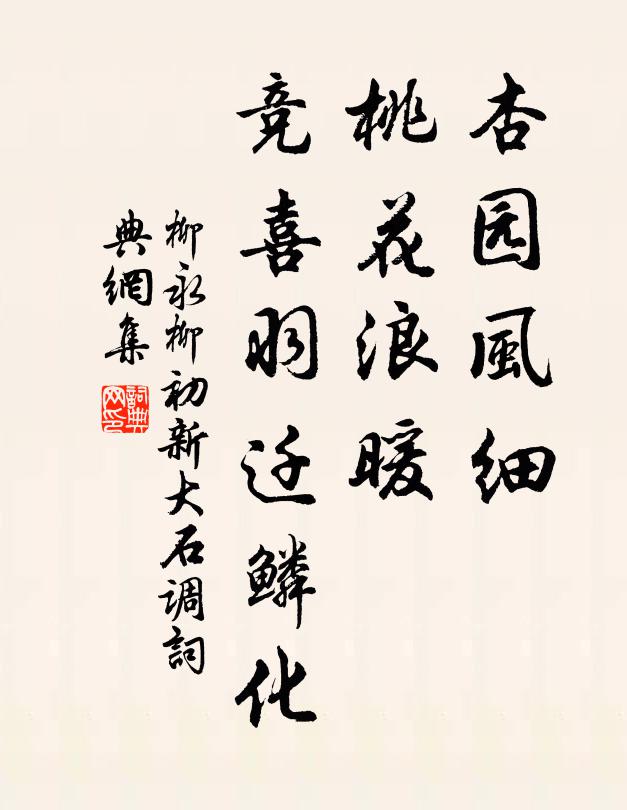 杏园風细
桃花浪暖
竞喜羽迁鳞化
柳永柳初新大石调詞
典網集
詞典网印